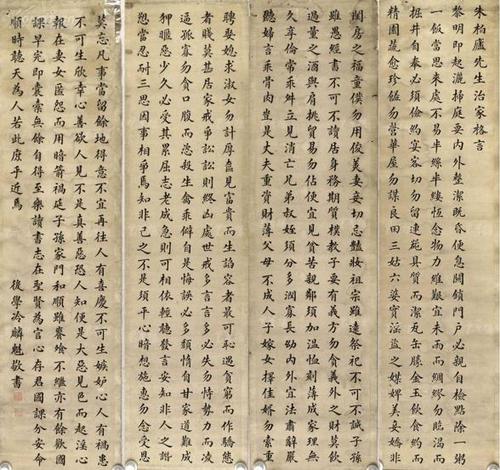 朱柏廬先生治家格言
黎明即起灑掃庭要內外整潔既昏便息關鎖門戶必親自檢點除一粥
一飯當思來處不易半絲半縷恆念物力維艱宜未雨而綢繆勿臨渴而
掘井自奉必須儉約宴客切勿留連器具質而潔瓦缶勝金玉飲食約而
精園蔬愈珍饈勿營華屋勿謀良田三姑六婆實淫盜之媒婢美妾嬌非
閨房之福童僕勿用俊美妻妾切忌豔妝祖宗雖遠祭祀不可不誠子孫
雖愚經書不可不讀居身務期質樸教子要有義方勿貪意外之財莫飲
過量之酒與肩挑貿易勿佔便宜見貧苦親鄰須加溫恤刻薄成家理無
久享倫常乖舛立見消亡兄弟叔姪須分多潤寡長幼內外宜法肅辭嚴
聽婦言乖骨肉豈是丈夫重資財薄父母不成人子嫁女擇佳婿勿索重
聘娶媳求淑女勿計厚奩見富貴而生諂容者最可恥遇貧窮而作驕態
者賤莫甚居家戒爭訟訟則終凶處世戒多言言多必失勿恃勢力而凌
逼孤寡勿貪口腹而恣殺生禽乖僻自是悔誤必多頹惰自甘家道難成
狎暱惡少久必受其累屈志老成急則可相依輕聽發言安知非人之譖
愬當忍耐三思因事相爭焉知非己之不是須平心暗想施惠勿念受恩
莫忘凡事當留餘地得意不宜再往人有喜慶不可生嫉妒心人有禍患
不可生欣幸心善欲人見不是真善惡恐人知便是大惡見色而起淫心
報在妻女匿怨而用暗箭禍延子孫家門和順雖饔飧不繼亦有餘歡國
課早完即囊橐無餘自得至樂讀書志在聖賢為官心存君國分安命
順時聽天為人若此庶乎近焉
後學冷麟魁敬書